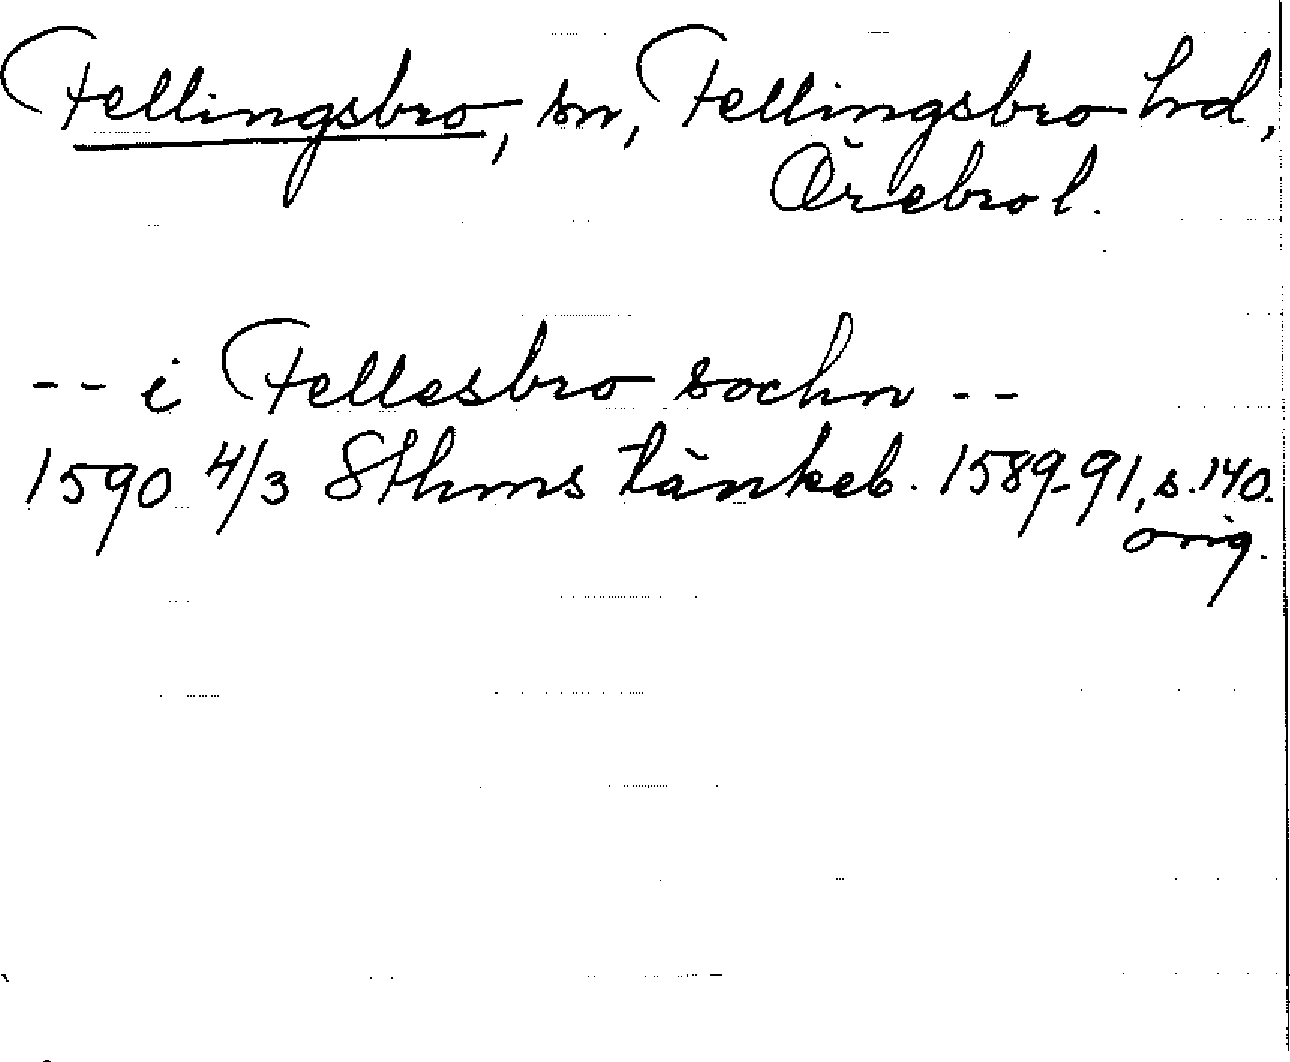 Fellingsbro, sn, Fellingsbro hrd,
Örebro l.
-- i Fellesbro sochn --
1590 4/3 Sthms tänkeb. 1589-91, s. 140.
orig.